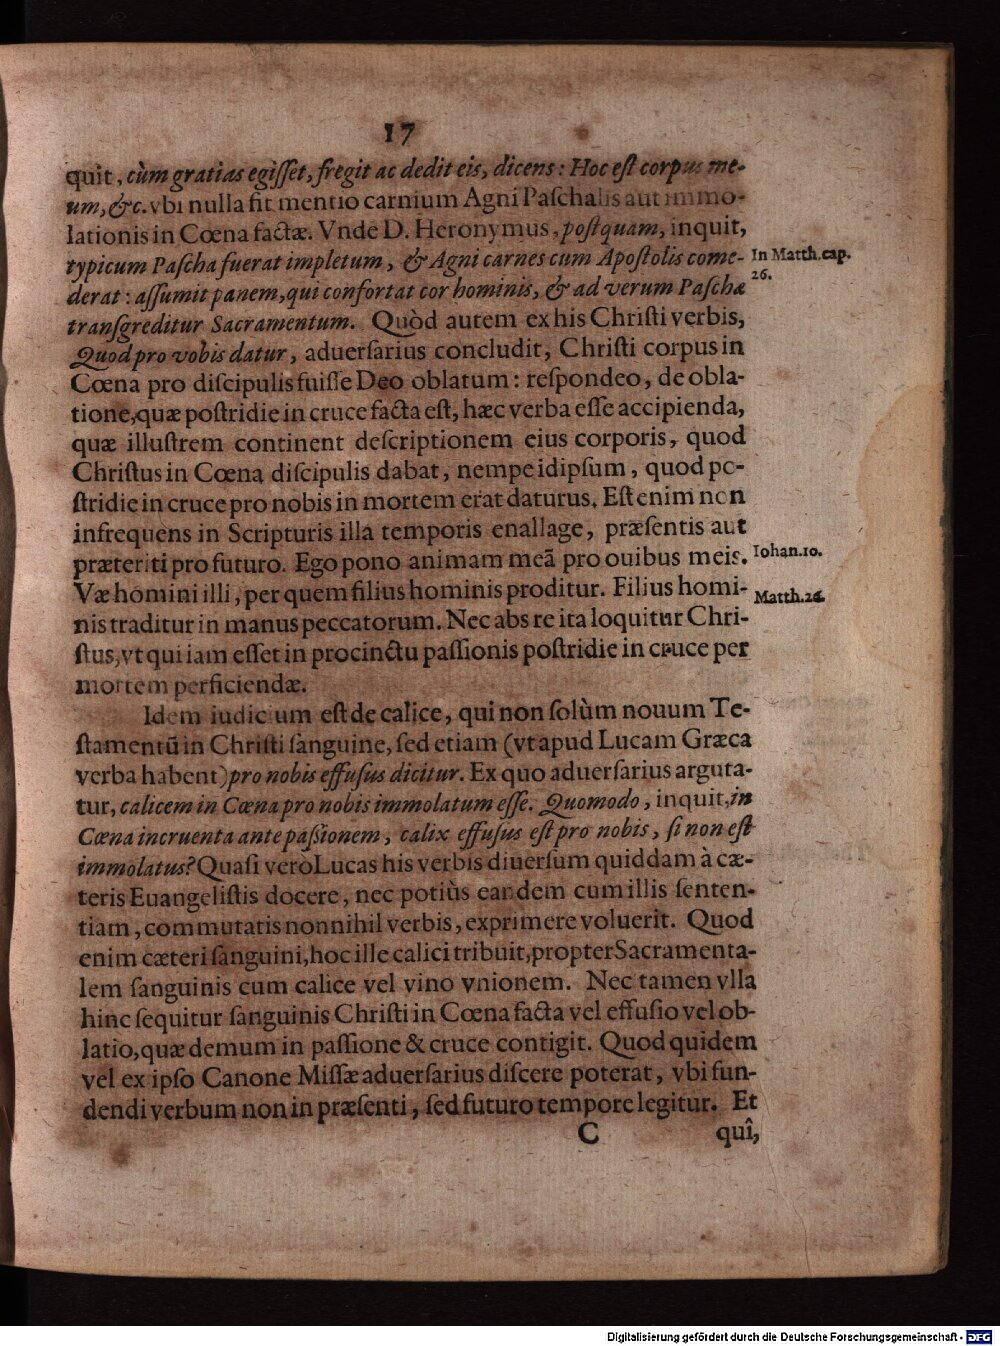 17
quit, cùm gratias egiſſet, fregit ac dedit eis, dicens: Hoc eſt corpus me-
um, &c. vbi nulla fit mentio carnium Agni Paſchalis aut immo-
lationis in Cœna factæ. Vnde D. Heronymus, poſtquam, inquit,
typicum Paſcha fuerat impletum, & Agni carnes cum Apoſtolis come-
In Matth. cap.
26.
derat: aſſumit panem, qui confortat cor hominis, & ad verum Paſchæ
tranſgreditur Sacramentum. Quòd autem ex his Chriſti verbis,
Quod pro vobis datur, aduerſarius concludit, Chriſti corpus in
Cœna pro diſcipulis fuiſſe Deo oblatum: reſpondeo, de obla-
tione, quæ poſtridie in cruce facta eſt, hæc verba eſſe accipienda,
quæ illuſtrem continent deſcriptionem eius corporis, quod
Chriſtus in Cœna diſcipulis dabat, nempe idipſum, quod po-
ſtridie in cruce pro nobis in mortem erat daturus. Eſt enim non
infrequens in Scripturis illa temporis enallage, præſentis aut
præteriti pro futuro. Ego pono animam meā pro ouibus meis.
Iohan. 10.
Væ homini illi, per quem filius hominis proditur. Filius homi-
Matth. 26.
nis traditur in manus peccatorum. Nec abs re ita loquitur Chri-
ſtus, vt qui iam eſſet in procinctu paſſionis poſtridie in cruce per
mortem perficiendæ.
Idem iudicium eſt de calice, qui non ſolùm nouum Te-
ſtamentū in Chriſti ſanguine, ſed etiam (vt apud Lucam Græca
verba habent) pro nobis effuſus dicitur. Ex quo aduerſarius arguta-
tur, calicem in Cœna pro nobis immolatum eſſe. Quomodo, inquit, in
Cœna incruenta ante paſsionem, calix effuſus eſt pro nobis, ſi non eſt
immolatus? Quaſi verò Lucas his verbis diuerſum quiddam à cæ-
teris Euangeliſtis docere, nec potiùs eandem cum illis ſenten-
tiam, commutatis nonnihil verbis, exprimere voluerit. Quod
enim cæteri ſanguini, hoc ille calici tribuit, propter Sacramenta-
lem ſanguinis cum calice vel vino vnionem. Nec tamen vlla
hinc ſequitur ſanguinis Chriſti in Cœna facta vel effuſio vel ob-
latio, quæ demum in paſſione & cruce contigit. Quod quidem
vel ex ipſo Canone Miſſæ aduerſarius diſcere poterat, vbi fun-
dendi verbum non in præſenti, ſed futuro tempore legitur. Et
C
quî,
Digitalisierung gefördert durch die Deutsche Forschungsgemeinschaft - DFG